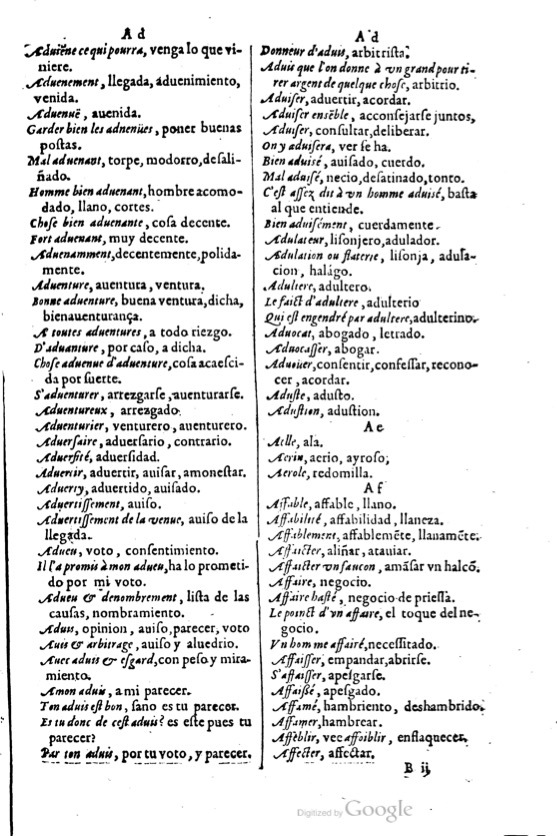 Ad
Aduiene ce qui pourra, venga lo que vi-
niere.
Aduenement, llegada, aduenimiento,
venida.
Aduenuë, auenida.
Garder bien les adnenües, poner buenas
postas.
Mal aduenant, torpe, modorro, desali-
ñado.
Homme bien aduenant, hombre acomo-
dado, llano, cortes.
Chose bien aduenante, cosa decente.
Fort aduenant, muy decente.
Aduenamment, decentemente, polida-
mente.
Aduenture, auentura, ventura.
Bonne aduenture, buena ventura, dicha,
bienauenturança.
A toutes aduentures, a todo riezgo.
D'aduanture, por caso, a dicha.
Chose aduenue d'aduenture, cosa acaesci-
da por suerte.
S'aduenturer, arrezgarse, auenturarse.
Aduentureux, arrezgado.
Aduenturier, venturero, auenturero.
Aduersaire, aduersario, contrario.
Aduersité, aduersidad.
Aduertir, aduertir, auisar, amonestar.
Aduerty, aduertido, auisado.
Aduertissement, auiso.
Aduertissement de la venue, auiso de la
llegada.
Adueu, voto, consentimiento.
Il l'a promis à mon adueu, ha lo prometi-
do por mi voto.
Adueu & denombrement, lista de las
causas, nombramiento.
Aduis, opinion, auiso, parecer, voto
Auis & arbitrage, auiso y aluedrio.
Auec aduis & esgard, con peso y mira-
miento.
A mon aduis, a mi parecer.
Ton aduis est bon, sano es tu parecer.
Es tu donc de cest aduis? es este pues tu
parecer?
Par ton aduis, por tu voto, y parecer.
Ad
Donneur d'aduis, arbitrista.
Aduis que l'on donne à vn grand pour ti-
rer argent de quelque chose, arbitrio.
Aduiser, aduertir, acordar.
Aduiser ensẽble, acconsejarse juntos,
Aduiser, consultar, deliberar.
On y aduisera, ver se ha.
Bien aduisé, auisado, cuerdo.
Mal aduisé, necio, desatinado, tonto.
C'est assez dit à vn homme aduisé, basta
al que entiende.
Bien aduisément, cuerdamente.
Adulateur, lisonjero, adulador.
Adulation ou flaterie, lisonja, adula-
cion, halágo.
Adultere, adultero.
Le faict d'adultere, adulterio
Qui est engendré par adultere, adulterino.
Aduocat, abogado, letrado.
Aduocasser, abogar.
Aduouer, consentir, confessar, recono-
cer, acordar.
Aduste, adusto.
Adustion, adustion.
Ae
Aelle, ala.
Aerin, aerio, ayroso;
Aerole, redomilla.
Af
Affable, affable, llano.
Affabilité, affabilidad, llaneza.
Affablement, affablemẽte, llanamẽte.
Affaicter, aliñar, atauiar.
Affaicter vn faucon, amãsar vn halcõ.
Affaire, negocio.
Affaire hasté, negocio de priessa.
Le poinct d'vn affaire, el toque del ne-
gocio.
Vn homme affairé, necessitado.
Affaisser, empandar, abrirse.
S'affaisser, apesgarse.
Affaissé, apesgado.
Affamé, hambriento, deshambrido.
Affamer, hambrear.
Affèblir, vec affoiblir, enflaquecer.
Affecter, affectar.
B ij
Digitized by Google